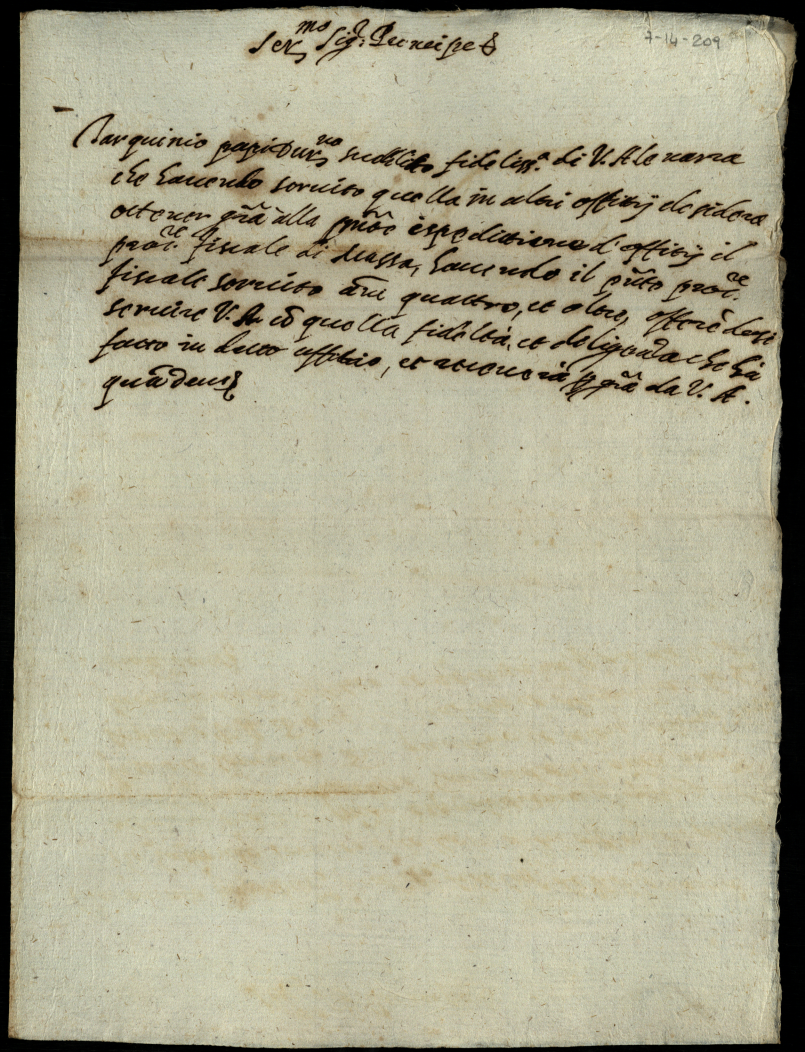 Ser.mo Sig.r Prencipe
7-14-209
Tarquinio papi suddito fideliss.o di V. A. le narra
che havendo servito quella in altri offitij desidera
ottener grã alla espeditione d'offitij il
proc.re fiscale di Massa, havendo il pñte proc.re
fiscale servito ãni quattro, et oltre, offerẽdosi
servire V. A. cõ quella fideltà, et diligenza che hà
fatto in detto offitio, et grã da V. A.
quã Deus